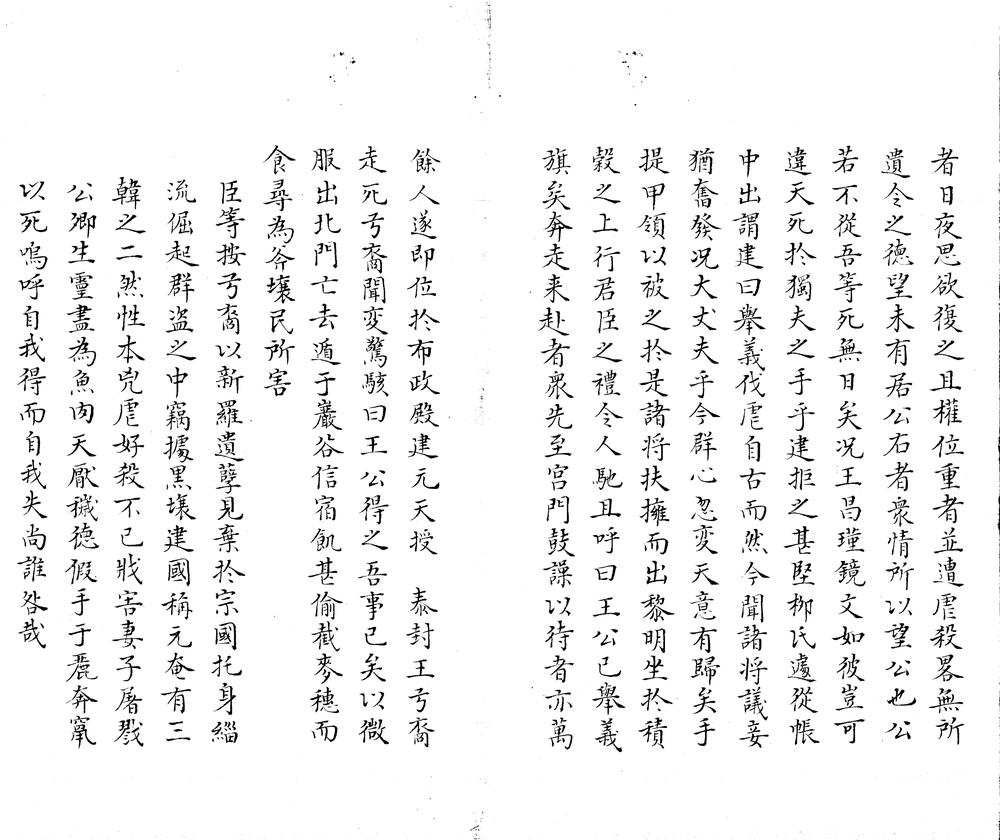 者日夜思欲復之且權位重者並遭虐殺畧無所
遺今之德望未有居公右者衆情所以望公也公
若不從吾等死無日矣况王昌瑾鏡文如彼豈可
違天死於獨夫之手乎建拒之甚堅柳氏遽從帳
中出謂建曰舉義伐虐自古而然今聞諸將議妾
猶奮發况大丈夫乎今群心忽変天意有歸矣手
提甲領以被之於是諸将扶擁而出黎明坐於積
穀之上行君臣之禮令人馳且呼曰王公已舉義
旗矣奔走来赴者衆先至宫門鼓譟以待者亦萬
餘人遂即位於布政殿建元天授　泰封王弓裔
走死弓裔聞変驚駭曰王公得之吾事已矣以微
服出北門亡去遁于巖谷信宿飢甚偷截麥穗而
食尋為斧壤民所害
臣等按弓裔以新羅遺孽見棄於宗國托身緇
流倔起群盗之中竊據黑壤建國稱元奄有三
韓之二然性本兇虐好殺不已戕害妻子屠戮
公卿生靈盡為魚肉天厭穢德假手于麗奔竄
以死嗚呼自我得而自我失尚誰咎哉